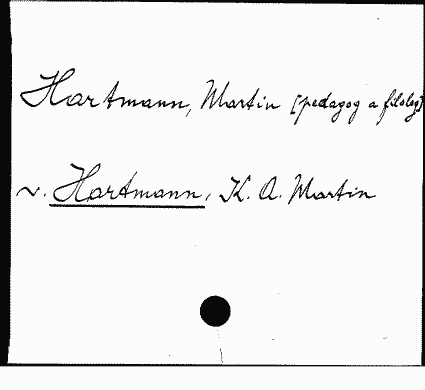 Hartmann, Martin [pedagog a filolog]
v. Hartmann, K. A. Martin